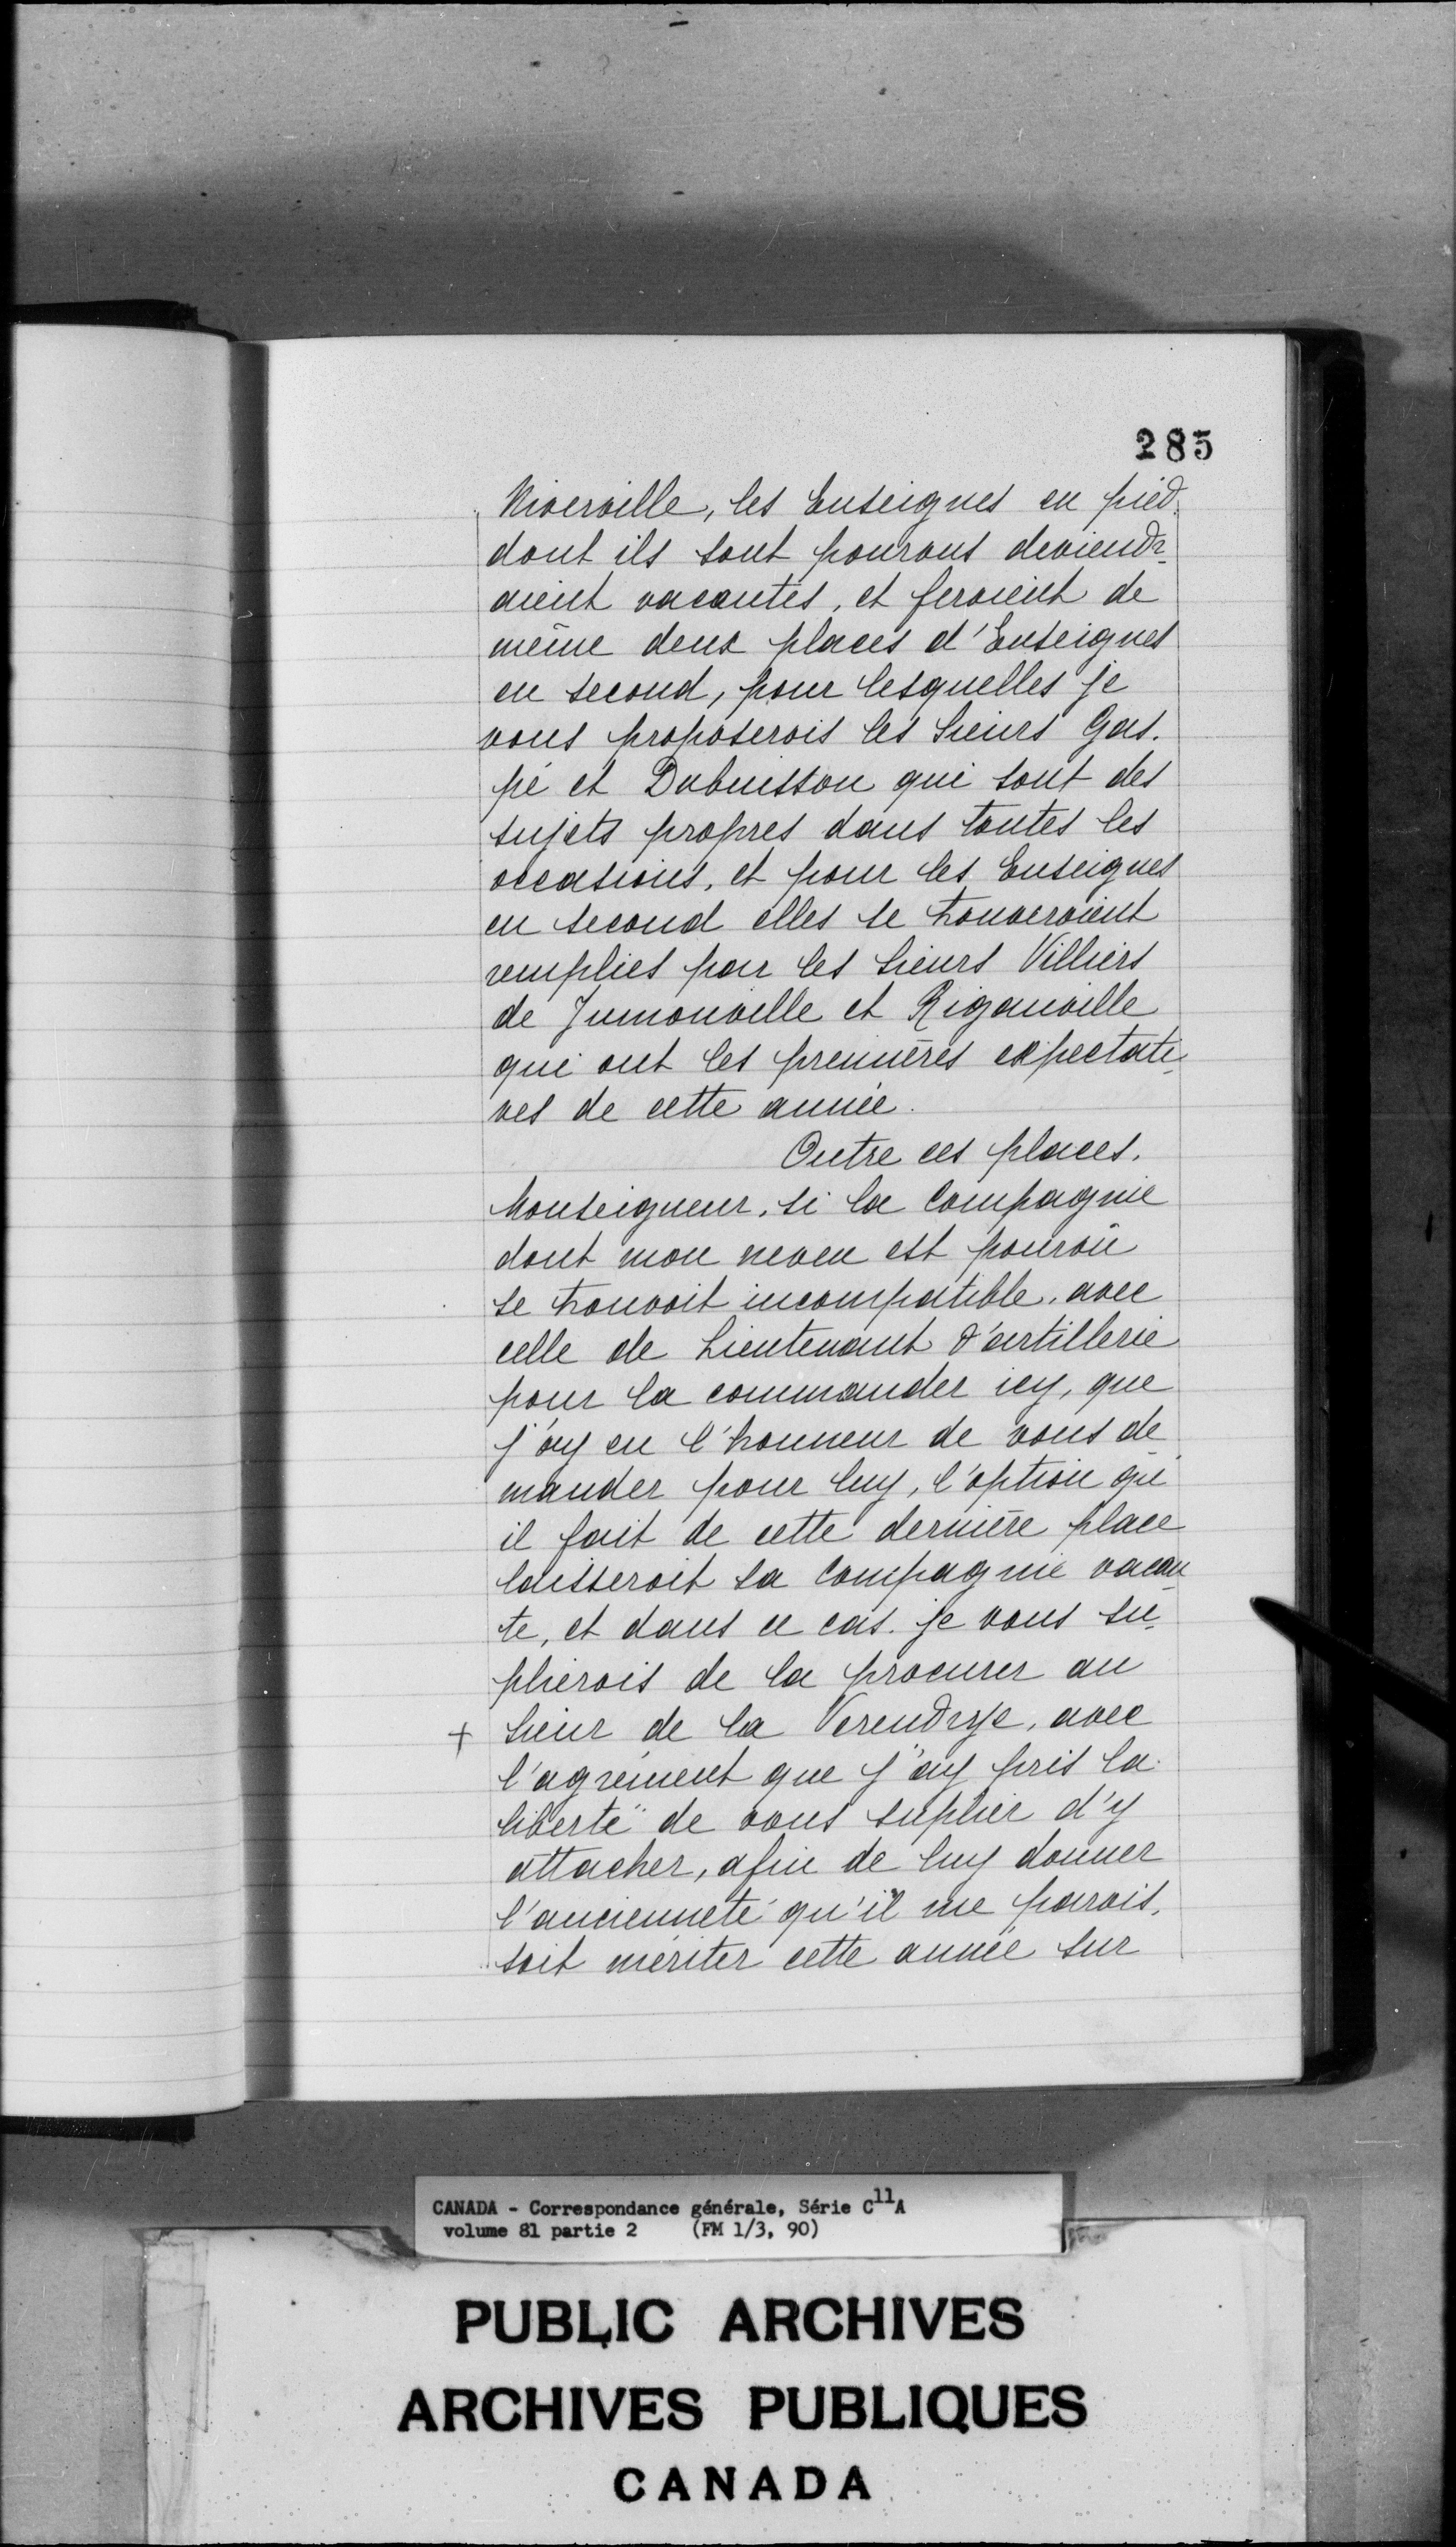 285
Niverville, les Enseignes en pied
dont ils sont pourvus deviendr-
aient vacantes, et feroient de
même deux places d'Enseignes
en second, pour lesquelles je
vous proposerois les Sieurs Gas.
pé et Dubuisson qui sont des
sujets propres dans toutes les
occasions, et pour les Enseignes
en second elles se trouveroient
remplies par les Sieurs Villiers
de Jumonville et Rigauville
qui ont les premières expectati-
ves de cette année.
Outre ces places.
Monseigneur, si la Compagnie
dont mon neveu est pourvû
se trouvoit incompatible, avec
celle de Lieutenant d'artillerie
pour la commander icy, que
j'ay eu l'honneur de vous de-
mander pour luy, l'option qu'
il fait de cette dernière place
laisseroit sa Compagnie vacan-
te, et dans ce cas. je vous su-
plierois de la procurer au
+ Sieur de la Verendrye, avec
l'agrément que j'ay pris la
liberté de vous suplier d'y
attacher, afin de luy donner
l'ancienneté qu'il me parois.
soit mériter cette année sur
CANADA - Correspondance générale, Série C11A
volume 81 partie 2 (FM 1/3, 90)
PUBLIC ARCHIVES
ARCHIVES PUBLIQUES
CANADA